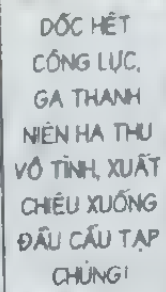 DỐC HẾT
CÔNG LỰC,
GA THANH
NIÊN HA THU
VÔ TÌNH, XUẤT
CHIÊU XUỐNG
ĐẦU CẨU TẠP
CHỦNG!